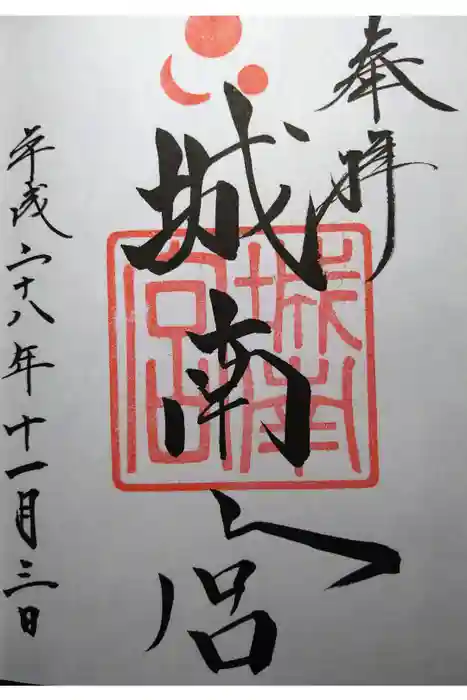 奉拝
城南宮
城南宮
平成二十八年十一月三日